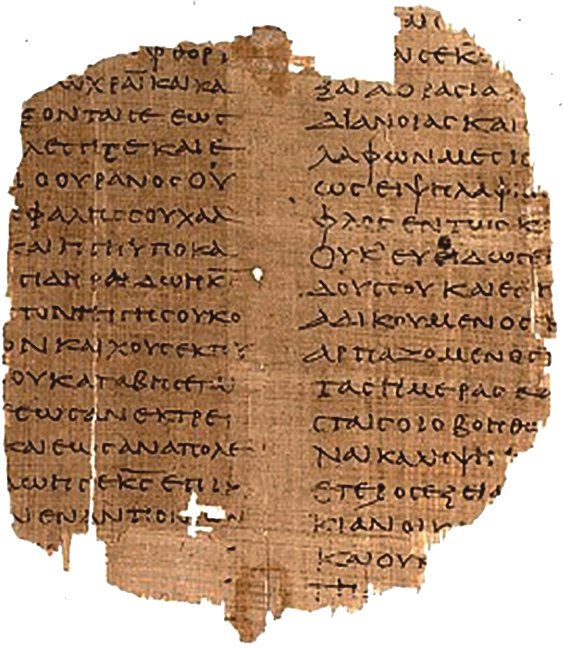 ΦΘΟΡΙ
ΩΧΡΑΙΚΑΙΚΑ
ΞΟΝΤΑΙϹΕΕΩϹ
ΛΕϹΗΤΕΚΑΙΕ
ΙΟΟΥΡΑΝΟϹΟΥ
ΕΦΑΛΗϹϹΟΥΧΑΛ
ϹΑΙΗΓΗΥΠΟΚΑ
ϹΙΔΗΡΑΔΩΗΚϹ
ΤΟΝΤΗΓΗϹΟΥΚΟ
ΟΝΚΑΙΧΟΥϹΕΚΤ
ΟΥΚΑΤΑΒΗϹΕΤΑΙ
ΕΩϹΑΝΕΚΤΡΕΙ
ΚΑΙΕΩϹΑΝΑΠΟΛΕ
ΔΩΗϹΕΚϹΕΠΙ
ΝΕΝΑΝΤΙΟΝ
ΑΙϹΕΚ
ΞΑΙΑΟΡΑϹΙΑ
ΔΙΑΝΟΙΑϹΚΑΙ
ΛΑΦΩΝΜΕϹ
ΩϹΕΙΨΗΛΑΦ
ΦΛΟϹΕΝΤΩΙϹΚ
ΟΥΚΕΥΟΔΩϹΕΙ
ΔΟΥϹϹΟΥΚΑΙΕϹ
ΑΔΙΚΟΥΜΕΝΟϹ
ΑΡΠΑΖΟΜΕΝΟϹ
ΤΑϹΗΜΕΡΑϹΚ
ϹΤΑΙϹΟΙΟΒΟΗΘΩ
ΝΑΙΚΑΛΗΨΗ
ΕΤΕΡΟϹΕΞΕΙΑ
ΚΙΑΝΟΙΚ
ΚΑΙΟΥΚ